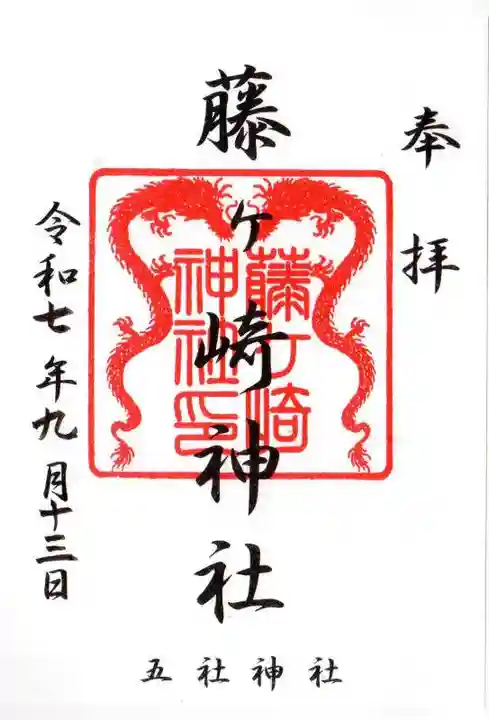 奉拝
藤ヶ崎神社
藤ヶ崎
神社印
令和七年九月十三日
五社神社